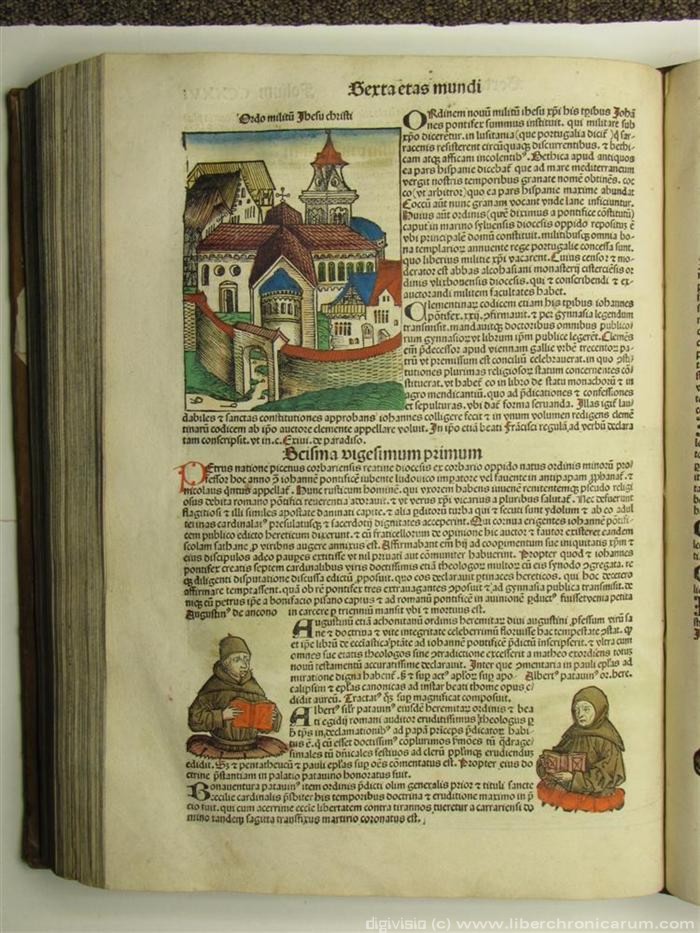 Sexta etas mundi
Ordo militũ Ihesu christi
ORdinem nouũ militũ ihesu xp̃i his tp̃ibus Iohã
nes pontifex summus instituit. qui militare sub
xp̃o diceretur. in lusitania (que portugalia dicit̃) q̃ sar-
racenis resisterent circũquaq; discurrentibus. et bethi-
cam atq; affricam incolentibꝰ. Bethica apud antiquos
ea pars hispanie dicebat̃ que ad mare mediterraneum
vergit nostris temporibus granate nomẽ obtinẽs. coc
co (vt arbitror) quo ea pars hispanie maxime abundat
Coccũ aũt nunc granam vocant vnde lane inficiuntur.
Huius aũt ordinis (quẽ diximus a pontifice cõstitutũ)
caput in marino syluensis diocesis oppido repositus ẽ
vbi principalẽ domũ construit. militibusq; omnia bo-
na templarioꝝ annuente rege portugalie concessa sunt.
quo liberius militie xp̃i vacarent. Cuius censor et mo-
derator est abbas alcobasiani monasterij cisterciẽsis or
dinis vlixbonensis diocesis. qui et conscribendi et ex-
auctorandi militem facultates habet.
CLementinaꝝ codicem etiam his tp̃ibus iohannes
põtifex .xxij. ↄfirmauit. et per gymnasia legendum
transmisit. mandauitq; doctoribus omnibus publico
rum gymnasioꝝ vt librum ip̃m publice legerẽt. Clemẽs
em̃ p̃decessor apud viennam gallie vrbẽ trecentoꝝ pa-
trũ vt premissum est conciliũ celebrauerat. in quo ↄsti-
tutiones plurimas religiosoꝝ statum concernentes cõ-
stituerat. vt habet̃ eo in libro de statu monachoꝝ et in
agro mendicantiũ. quo ad p̃dicationes et confessiones
et sepulturas. vbi dat̃ forma seruanda. Illas igit̃ lau
dabiles et sanctas constitutiones approbans iohannes colligere fecit et in vnum volumen redigens clemẽ
tinarũ codicem ab ip̃o auctore clemente appellare voluit. In ip̃o etiã beati Frãcisci regulã ad verbũ declara
tam conscripsit. vt in .c. Exiui. de paradiso.
Scisma vigesimum primum
PEtrus natione picenus corbariensis reatine diocesis ex corbario oppido natus ordinis minorũ pro-
fessor hoc anno ꝯ̃ iohannẽ pontificẽ iubente ludouico impatore vel fauente in antipapam ꝓphanat̃. et
nicolaus q̃ntus appellat̃. Hunc rusticum hominẽ. qui vxorem habens inuenẽ renitentemq; pseudo religi
osus debita romano põtifici reuerentia adorauit. et vt verus xp̃i vicarius a pluribus salutat̃. Nec defuerunt
flagitiosi et illi similes apostate damnati capite. et alia p̃ditorũ turba qui et secuti sunt ydolum et ab eo adul
terinas cardinalatꝰ presulatusq; et sacerdotij dignitates acceperint. Qui cornua erigentes iohannẽ põtifi-
cem publico edicto hereticum dixerunt. et cũ fraticelloꝝ de opinione his auctor et fautor existeret eandem
scolam sathane ꝓ viribus augere annixus est. Affirmabant em̃ hij ad cooꝑimentum sue iniquitatis xp̃m et
eius discipulos adeo paupes extitisse vt nil priuati aut cõmuniter habuerint. Propter quod et iohannes
pontifex creatis septem cardinalibus viris doctissimis etiã theologoꝝ multoꝝ cũ eis synodo ↄgregata. re
q; diligenti disputatione discussa edictũ ꝓposuit. quo eos declarauit ꝑtinaces hereticos. qui hoc decetero
affirmare temptassent. quã ob rẽ pontifex tres extrauagantes ꝓposuit et ad gymnasia publica transmisit. de
niq; cũ petrus ip̃e a bonifacio pisano captus et ad romanũ pontificẽ in auinionẽ ꝑductꝰ fuisset venia petita
Augustinꝰ de ancono
in carcere ꝑ trienniũ mansit vbi et mortuus est.
AUgustinũ etiã achonitanũ ordinis heremitaꝝ diui augustini ꝓfessum virũ sa
ne et doctrina et vite integritate celeberrimũ floruisse hac tempestate ↄstat. q̃
et ip̃e librũ de ecclesiastica ptãte ad iohannẽ pontificẽ p̃dictũ inscripserit. et vltra cunt
omnes sue etatis theologos sine ↄtradictione excesserit a matheo exordiens totus
nouũ testamentũ accuratissime declarauit. Inter que ↄmentaria in pauli ep̃las ad
miratione digna habent̃. Et et sup actꝰ apl̃oꝝ sup apo-
Albertꝰ patauinꝰ or. here.
calipsim et ep̃las canonicas ad instar beati thome opus e
didit aureũ. Tractatꝰ q̃s sup magnificat composuit.
ALbertꝰ sil̃r patauinꝰ eiusdẽ heremitaꝝ ordinis et bea
ti egidij romani auditor eruditissimus theologus ꝓ
bꝰ tp̃is in declamationibꝰ ad papã p̃riceps p̃dicatoꝝ habi-
tus ẽ. q̃ cũ esset doctissimꝰ cõplurimos ꝑmões tũ q̃dragesi
simales tũ dñicales festiuos ad clerũ ppl̃mq; erudiendum
edidit. Sꝫ et pentatheucũ et pauli ep̃las sup oẽs cõmentatus est. Propter eius do
ctrine p̃stantiam in palatio patauino honoratus fuit.
BOnauentura patauinꝰ item ordinis p̃dicti olim generalis prior et tituli sancte
Cecilie cardinalis p̃sbiter his temporibus doctrina et eruditione maximo in p̃
cio fuit. qui cum acerrime eccl̃e libertatem contra tirannos tueretur a carrariensi do
mino tandem sagitta transfixus martirio coronatus est.
digivisio (c) www.liberchronicarum.com